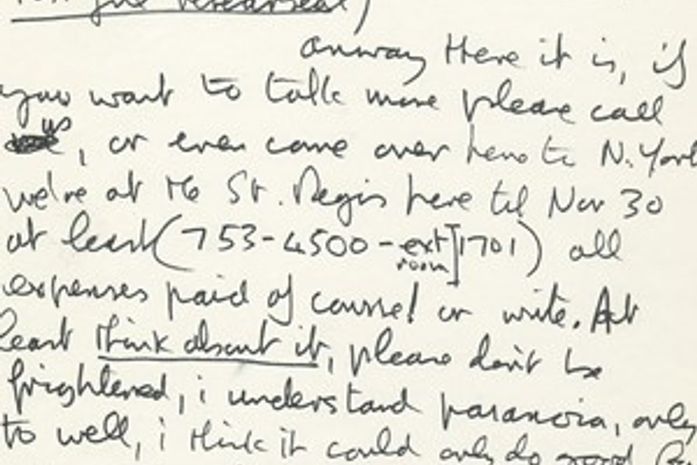 anway there it is, if
you want to talk more please call
us, or even come over here to N. York
we're at the St. Regis here til Nov 30
at least (753-4500-ext room 1701) all
expenses paid of course! or write. At
least think about it, please don't be
frightened, i understand paranoia, only
to well, i think it could only do good